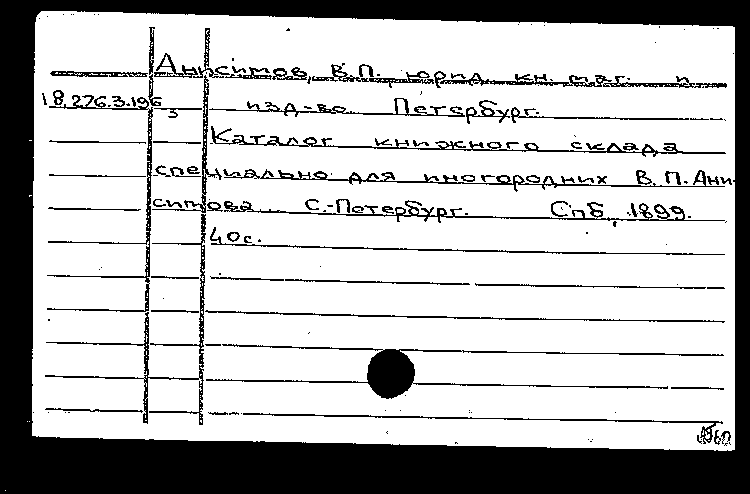 Анисимов, В.П., юрид. кн. маг. и
18.276.3.196
3
изд-во Петербург.
Каталог книжного склада
специально для иногородних В.П.Ани-
симова С.-Петербург. Спб, 1899.
40с.